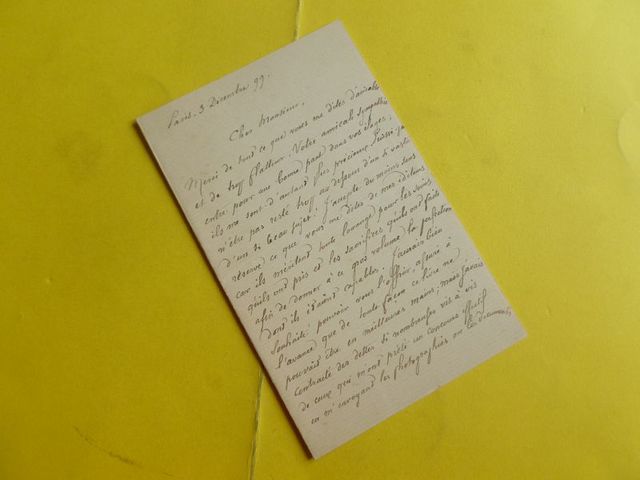 Paris, 3 Décembre 99.
Cher Monsieur,
Merci de tout ce que vous me dites d'aimable
et de trop flatteur. Votre amicale sympathie
entre pour une bonne part dans vos éloges,
ils me sont d'autant plus précieux. Puissé-je
n'être pas resté trop au dessous d'un si vaste
d'un si beau sujet. J'accepte du moins sans
réserve ce que vous me dites de mes éditeurs
car ils méritent toute louange pour les soins
qu'ils ont pris et les sacrifices qu'ils ont faits
afin de donner à ce gros volume la perfection
dont ils étaient capables. J'aurais bien
souhaité pouvoir vous l'offrir, assuré à
l'avance que de toute façon ce livre ne
pouvait être en meilleures mains, mais j'avais
contracté des dettes si nombreuses vis à vis
de ceux qui m'ont prêté un concours effectif
en m'envoyant les photographies ou les documents,